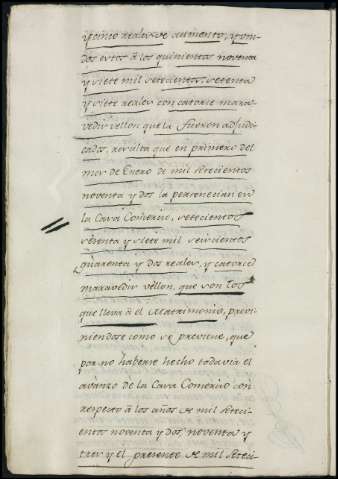 y cinco reales de aumento, y uni-
dos estos â los quinientos noventa
y siete mil setecientos setenta
y siete reales con catorce mara-
vedis vellon que la fueron adjudi-
cados, resulta que en primero del
mes de Enero de mil setecientos
noventa y dos la pertenecian en
la Casa Comercio, setecientos
setenta y siete mil seiscientos
quarenta y dos reales, y catorce
maravedis vellon, que son los
que lleva â el Matrimonio, previ-
niendose como se previene, que
por no haberse hecho todavia el
avanzo de la Casa Comercio con
respecto â los años de mil seteci-
entos noventa y dos, noventa y
tres y el presente de mil seteci-